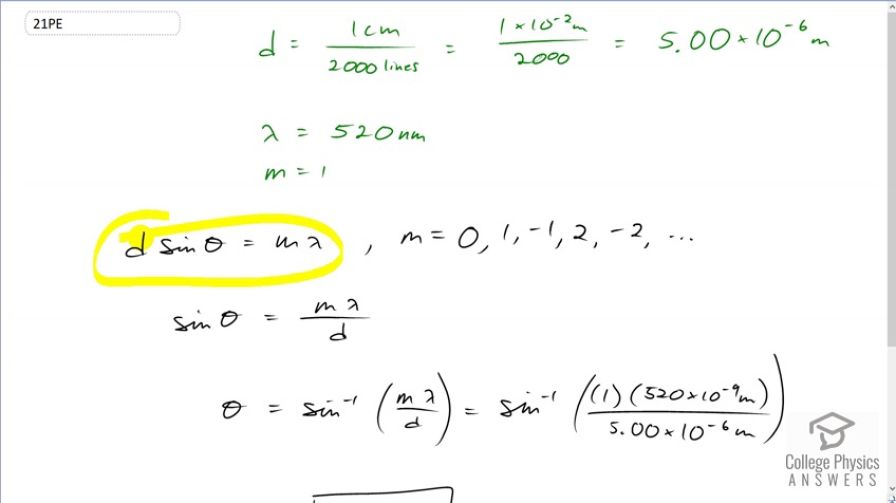 21PE
d = 1cm / 2000 lines = 1 × 10⁻² m / 2000 = 5.00 × 10⁻⁶ m
λ = 520 nm
m = 1
d sin θ = m λ , m = 0, 1, -1, 2, -2, ...
sin θ = m λ / d
θ = sin⁻¹ (m λ / d) = sin⁻¹ ((1) (520 × 10⁻⁹ m) / 5.00 × 10⁻⁶ m)
College Physics
ANSWERS